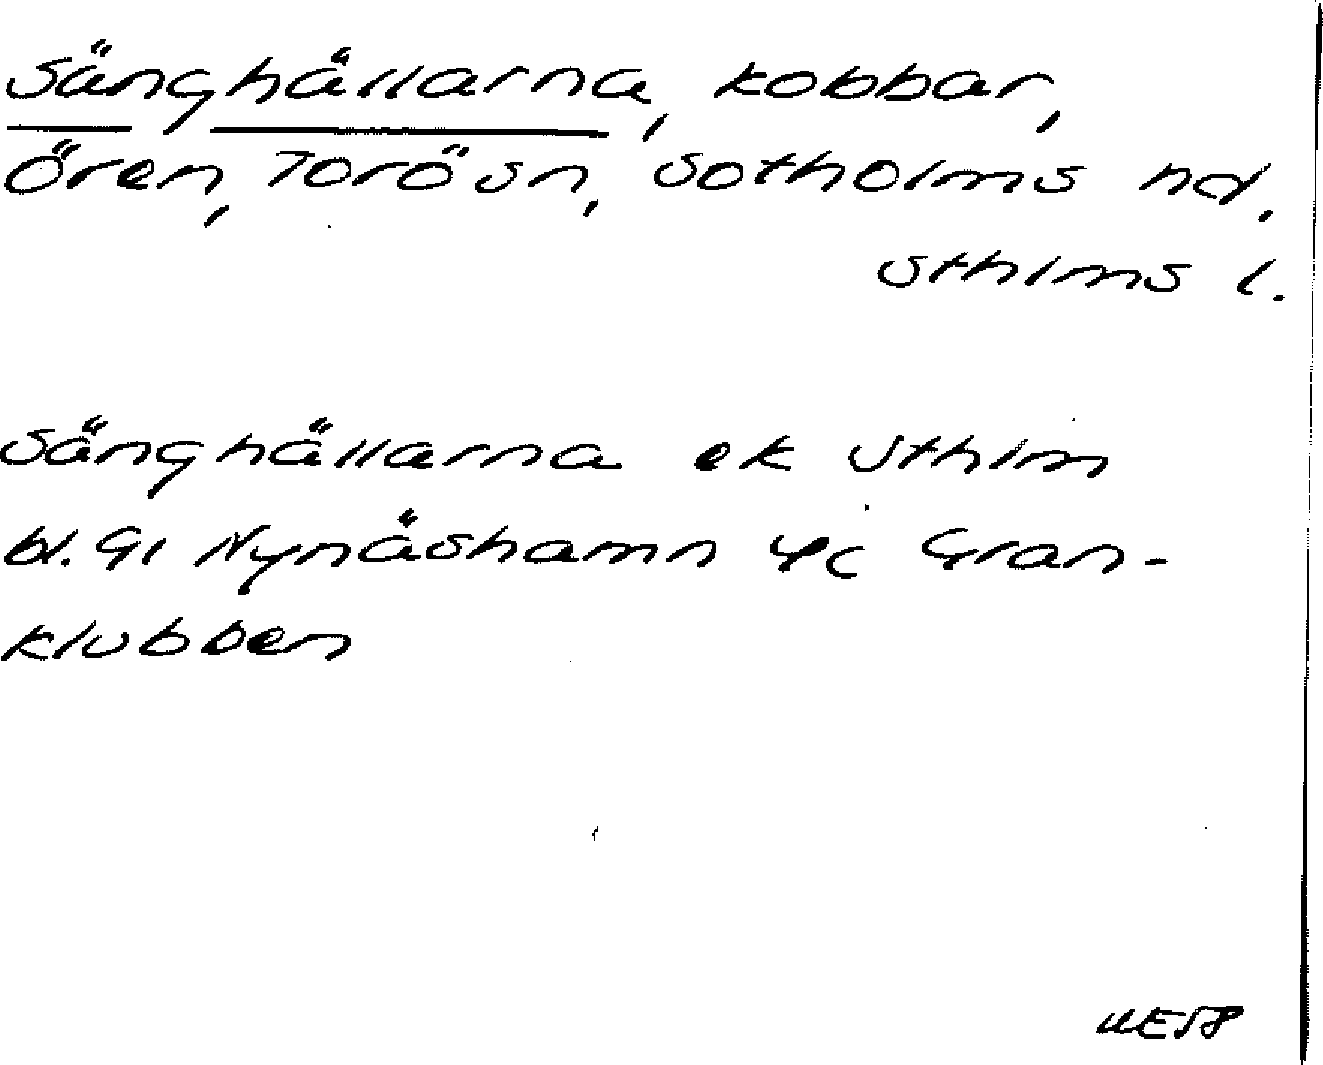 Sänghällarna, kobbar,
Ören, Torö sn, Sotholms hd,
Sthlms l.
Sänghällarna ek Sthlm
bl. 91 Nynäshamn 4c Gran-
klubben
UE58